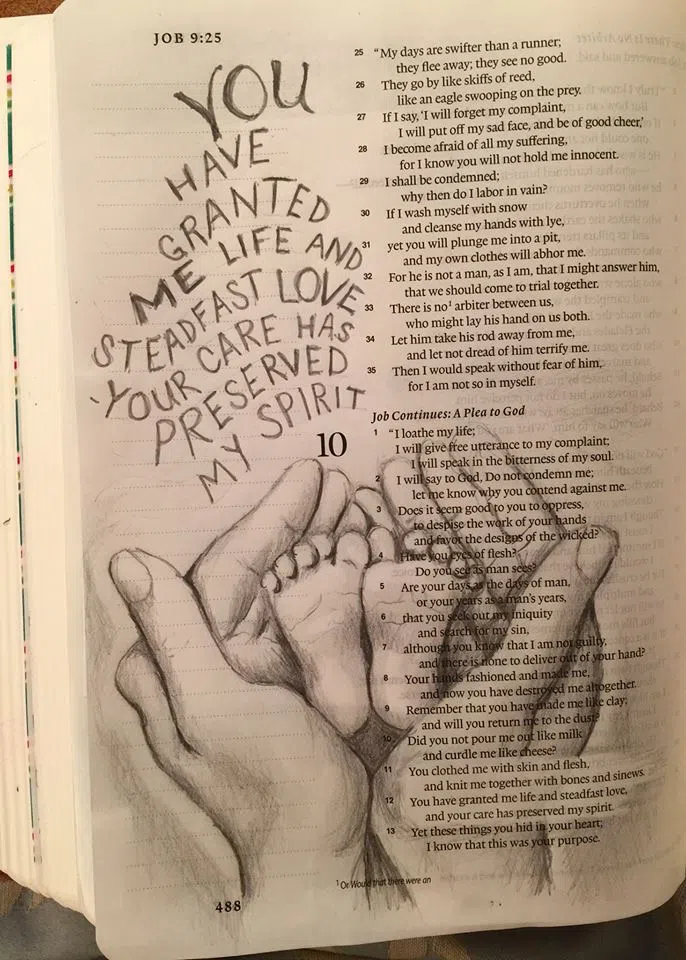 JOB 9:25
YOU
HAVE
GRANTED
ME LIFE AND
STEADFAST LOVE
YOUR CARE HAS
PRESERVED
MY SPIRIT
25 “My days are swifter than a runner;
they flee away; they see no good.
26 They go by like skiffs of reed,
like an eagle swooping on the prey.
27 If I say, ‘I will forget my complaint,
I will put off my sad face, and be of good cheer,’
28 I become afraid of all my suffering,
for I know you will not hold me innocent.
29 I shall be condemned;
why then do I labor in vain?
30 If I wash myself with snow
and cleanse my hands with lye,
31 yet you will plunge me into a pit,
and my own clothes will abhor me.
32 For he is not a man, as I am, that I might answer him,
that we should come to trial together.
33 There is no¹ arbiter between us,
who might lay his hand on us both.
34 Let him take his rod away from me,
and let not dread of him terrify me.
35 Then I would speak without fear of him,
for I am not so in myself.
Job Continues: A Plea to God
10
1 “I loathe my life;
I will give free utterance to my complaint;
I will speak in the bitterness of my soul.
2 I will say to God, Do not condemn me;
let me know why you contend against me.
3 Does it seem good to you to oppress,
to despise the work of your hands
and favor the designs of the wicked?
4 Have you eyes of flesh?
Do you see as man sees?
5 Are your days as the days of man,
or your years as a man’s years,
6 that you seek out my iniquity
and search for my sin,
7 although you know that I am not guilty,
and there is none to deliver out of your hand?
8 Your hands fashioned and made me,
and now you have destroyed me altogether.
9 Remember that you have made me like clay;
and will you return me to the dust?
10 Did you not pour me out like milk
and curdle me like cheese?
11 You clothed me with skin and flesh,
and knit me together with bones and sinews.
12 You have granted me life and steadfast love,
and your care has preserved my spirit.
13 Yet these things you hid in your heart;
I know that this was your purpose.
¹ Or Would that there were an
488